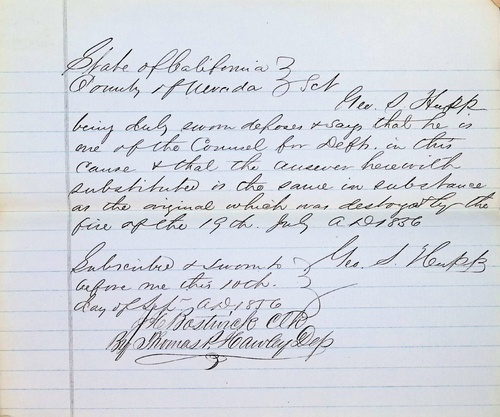 State of California }
County of Nevada } Sct
Geo. S. Hupp
being duly sworn deposes & says that he is
one of the Counsel for Defts. in this
cause & that the answer herewith
substituted is the same in substance
as the original which was destroyed by the
fire of the 19th. July A D 1856
Subscribed & sworn to } Geo. S. Hupp
before me this 10th.
day of Sept A D 1856
Bostwick Clk
By Thomas P. Hawley Dep